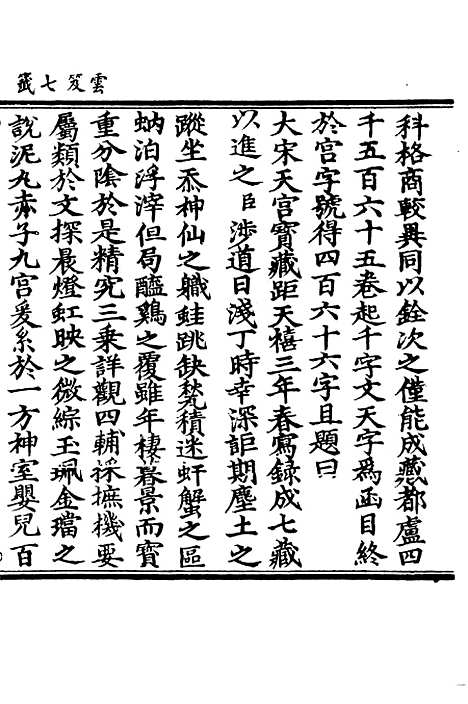 雲笈七籤
科格商較異同以銓次之僅能成藏都盧四
千五百六十五卷起千字文天字為函目終
於宫字號得四百六十六字且題曰
大宋天宫寶藏距天禧三年春寫錄成七藏
以進之臣涉道日淺丁時幸深詎期塵土之
蹤坐忝神仙之軄蛙跳缺甃積迷蚈蟹之區
蚋泊浮滓但局醯鷄之覆雖年棲暮景而寳
重分陰於是精究三乗詳觀四輔採摭機要
屬類於文探晨燈虹映之微綜玉珮金璫之
說泥丸赤子九宫爰系於一方神室嬰兒百